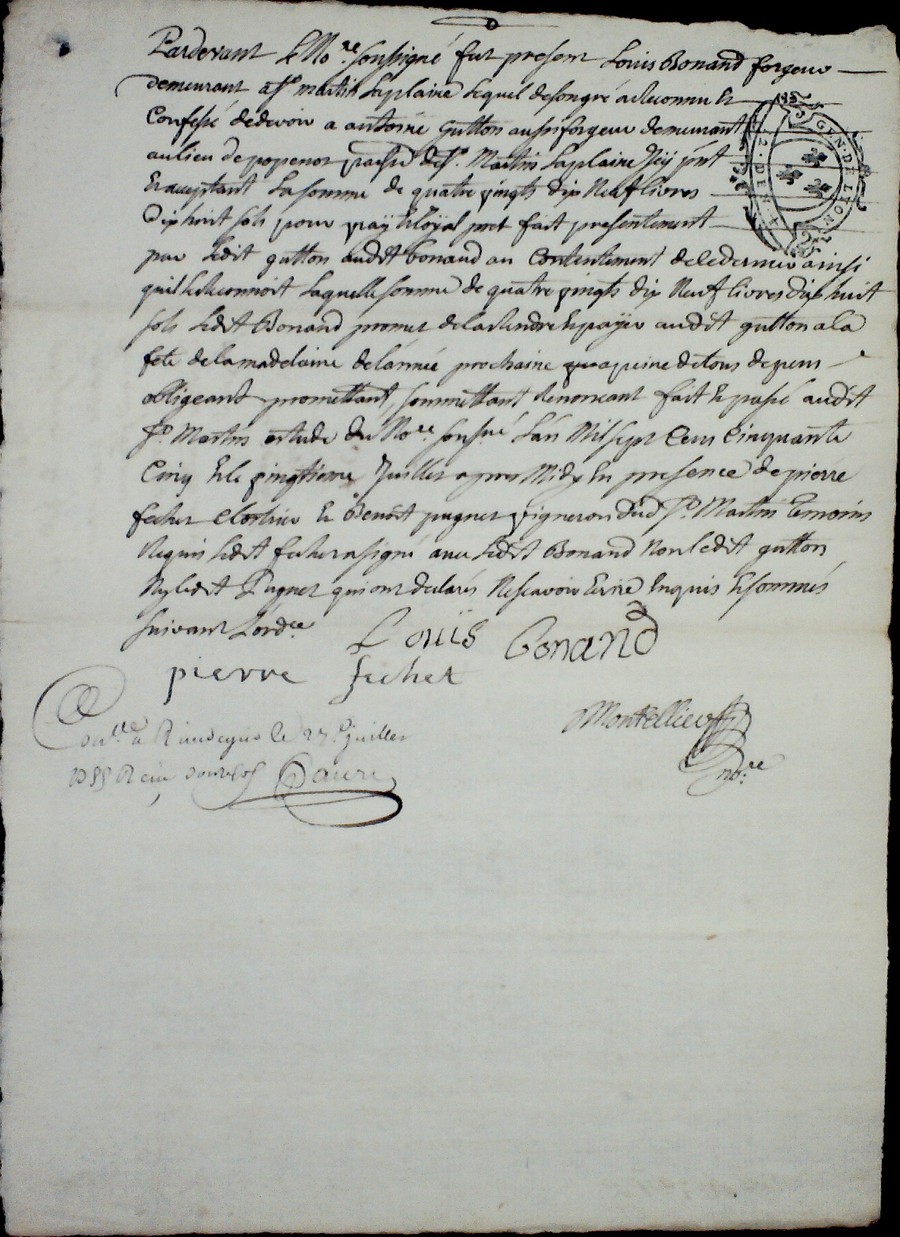 Pardevant le No.re soussigné fut present Louis Bonand forgeur
demeurant a St martin Laplaine Lequel de son gré a Reconnu Et
Confessé de devoir a antoine gutton aussi forgeur demeurant
au lieu de popenot paroisse de St. Martin Laplaine Icy pnt
Et acceptant La somme de quatre vingts dix Neuf livres
Dix huit sols pour pret fait presentement
par Ledit gutton audit Bonand au Contentement de ce dernier ainsi
quil le Reconnoit Laquelle somme de quatre vingts dix Neuf livres dix huit
sols Ledit Bonand promet de la Rendre Et payer audit gutton a la
fete de la madelaine de l'année prochaine a peine de tous depens
obligeant promettant soumettant Renoncant fait Et passé audit
St. Martin estude du No.re sous.né L'an Mil sept Cens Cinquante
Cinq Et le vingtieme Juillet apres Midy En presence de pierre
fechet Et Benoit pugnet vigneron dud St. Martin Temoins
Requis Ledit fechet a signé avec Ledit Bonand Non Ledit gutton
Ny Ledit Pugnet qui ont declarés Ne scavoir Ecrire Enquis Et sommés
suivant L'ord.ce
Louis Bonand
pierre fechet
Montellier
no.re
Con.llé a Rivedegier le 27.e juillet
1755 Reçu douze sols
GEN. DE LYON
2. DEN